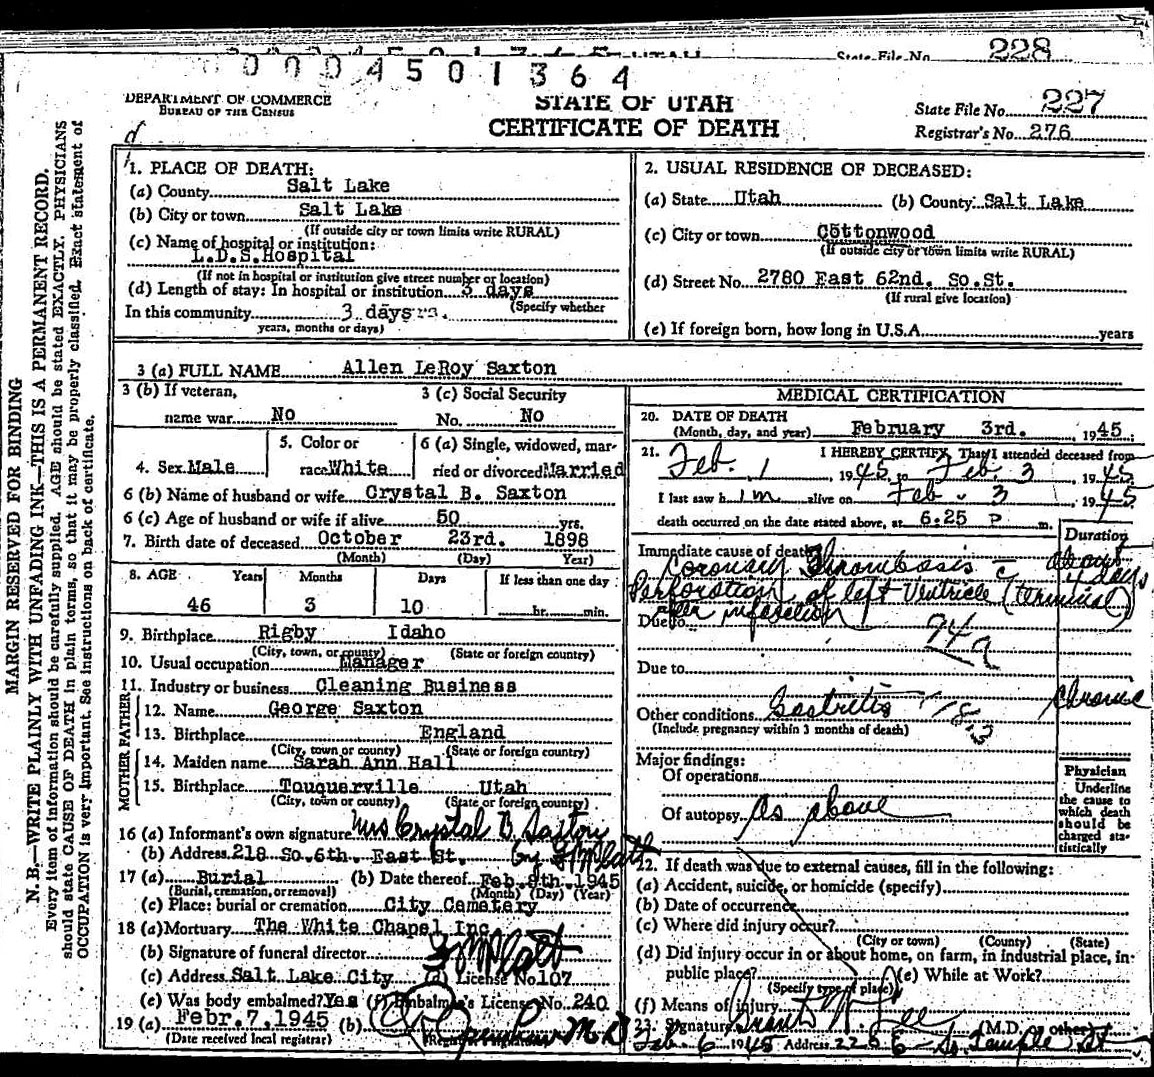 228
State File No.
0004501364
DEPARTMENT OF COMMERCE
BUREAU OF THE CENSUS
STATE OF UTAH
CERTIFICATE OF DEATH
State File No. 227
Registrar's No. 276
MARGIN RESERVED FOR BINDING
N. B.—WRITE PLAINLY WITH UNFADING INK—THIS IS A PERMANENT RECORD.
Every item of information should be carefully supplied. AGE should be stated EXACTLY. PHYSICIANS
should state CAUSE OF DEATH in plain terms, so that it may be properly classified. Exact statement of
OCCUPATION is very important. See instructions on back of certificate.
1. PLACE OF DEATH:
(a) County Salt Lake
(b) City or town Salt Lake
(If outside city or town limits write RURAL)
(c) Name of hospital or institution:
L.D.S.Hospital
(If not in hospital or institution give street number or location)
(d) Length of stay: In hospital or institution 3 days
(Specify whether
In this community 3 days
years, months or days)
2. USUAL RESIDENCE OF DECEASED:
(a) State Utah (b) County Salt Lake
(c) City or town Cottonwood
(If outside city or town limits write RURAL)
(d) Street No. 2780 East 62nd. So.St.
(If rural give location)
(e) If foreign born, how long in U.S.A. years
3 (a) FULL NAME Allen LeRoy Saxton
3 (b) If veteran, 3 (c) Social Security
name war No No. No
4. Sex Male 5. Color or race White 6 (a) Single, widowed, married or divorced Married
6 (b) Name of husband or wife Crystal B. Saxton
6 (c) Age of husband or wife if alive 50 yrs.
7. Birth date of deceased October 23rd. 1898
(Month) (Day) Year)
8. AGE Years Months Days If less than one day
46 3 10 hr. min.
9. Birthplace Rigby Idaho
(City, town, or county) (State or foreign country)
10. Usual occupation Manager
11. Industry or business Cleaning Business
FATHER
12. Name George Saxton
13. Birthplace England
(City, town or county) (State or foreign country)
MOTHER
14. Maiden name Sarah Ann Hall
15. Birthplace Touquerville Utah
(City, town or county) (State or foreign country)
16 (a) Informant's own signature Mrs Crystal B. Saxton
(b) Address 218 So.6th. East St.
17 (a) Burial (b) Date thereof Feb. 8th. 1945
(Burial, cremation, or removal) (Month) (Day) (Year)
(c) Place: burial or cremation City Cemetery
18 (a) Mortuary The White Chapel Inc
(b) Signature of funeral director
(c) Address Salt Lake City (d) License No. 107
(e) Was body embalmed? Yes (f) Embalmer's License No. 240
19 (a) Febr.7,1945 (b) M.D.
(Date received local registrar)
MEDICAL CERTIFICATION
20. DATE OF DEATH
(Month, day, and year) February 3rd. 1945
21. I HEREBY CERTIFY, That I attended deceased from
Feb. 1 1945 to Feb. 3, 1945
I last saw him alive on Feb. 3 1945
death occurred on the date stated above, at 6:25 P m.
Duration
Immediate cause of death
Coronary Thrombosis about 4 days
Perforation of left Ventricle (terminal)
after infarction
Due to 94
Due to
Other conditions Gastritis chronic
(Include pregnancy within 3 months of death)
Major findings:
Of operations
Of autopsy As above
Physician
Underline
the cause to
which death
should be
charged sta-
tistically
22. If death was due to external causes, fill in the following:
(a) Accident, suicide, or homicide (specify)
(b) Date of occurrence
(c) Where did injury occur?
(City or town) (County) (State)
(d) Did injury occur in or about home, on farm, in industrial place, in
public place? (e) While at Work?
(Specify type of place)
(f) Means of injury
23. Signature (M.D. or other)
Feb. 6 1945 Address E So. Temple St